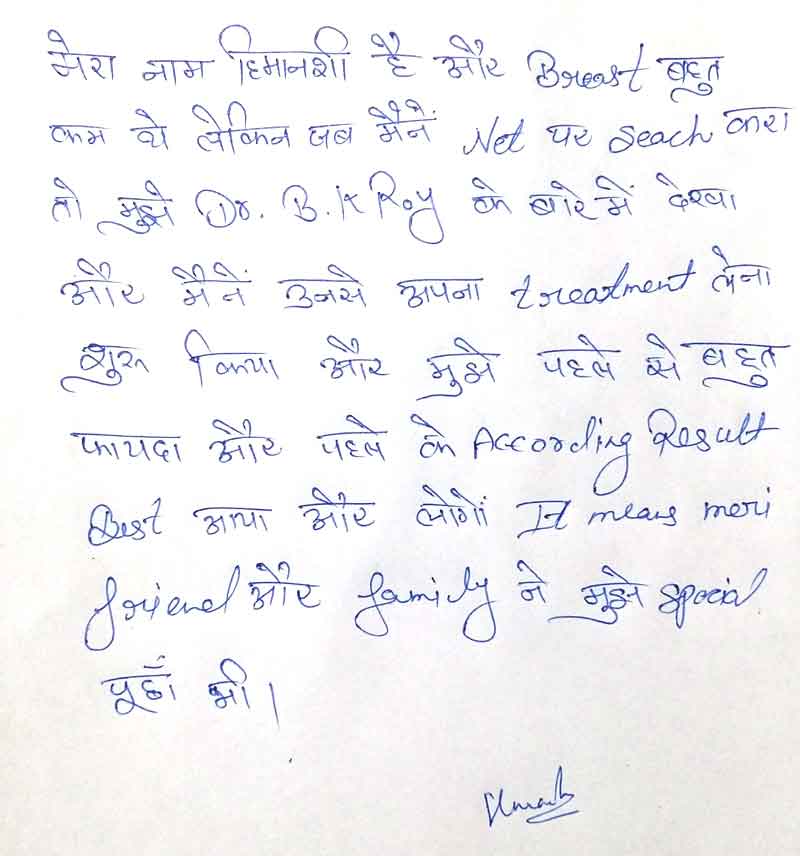 मेरा नाम हिमानशी है और Breast बहुत
कम थे लेकिन जब मैनें Net पर Seach करा
तो मुझे Dr. B.K Roy के बारे में देखा
और मैनें उनसे अपना treatment लेना
शुरू किया और मुझे पहले से बहुत
फायदा और पहले के According Result
Best आया और लोगों It means meri
friend और family ने मुझे special
पूछाँ भी।